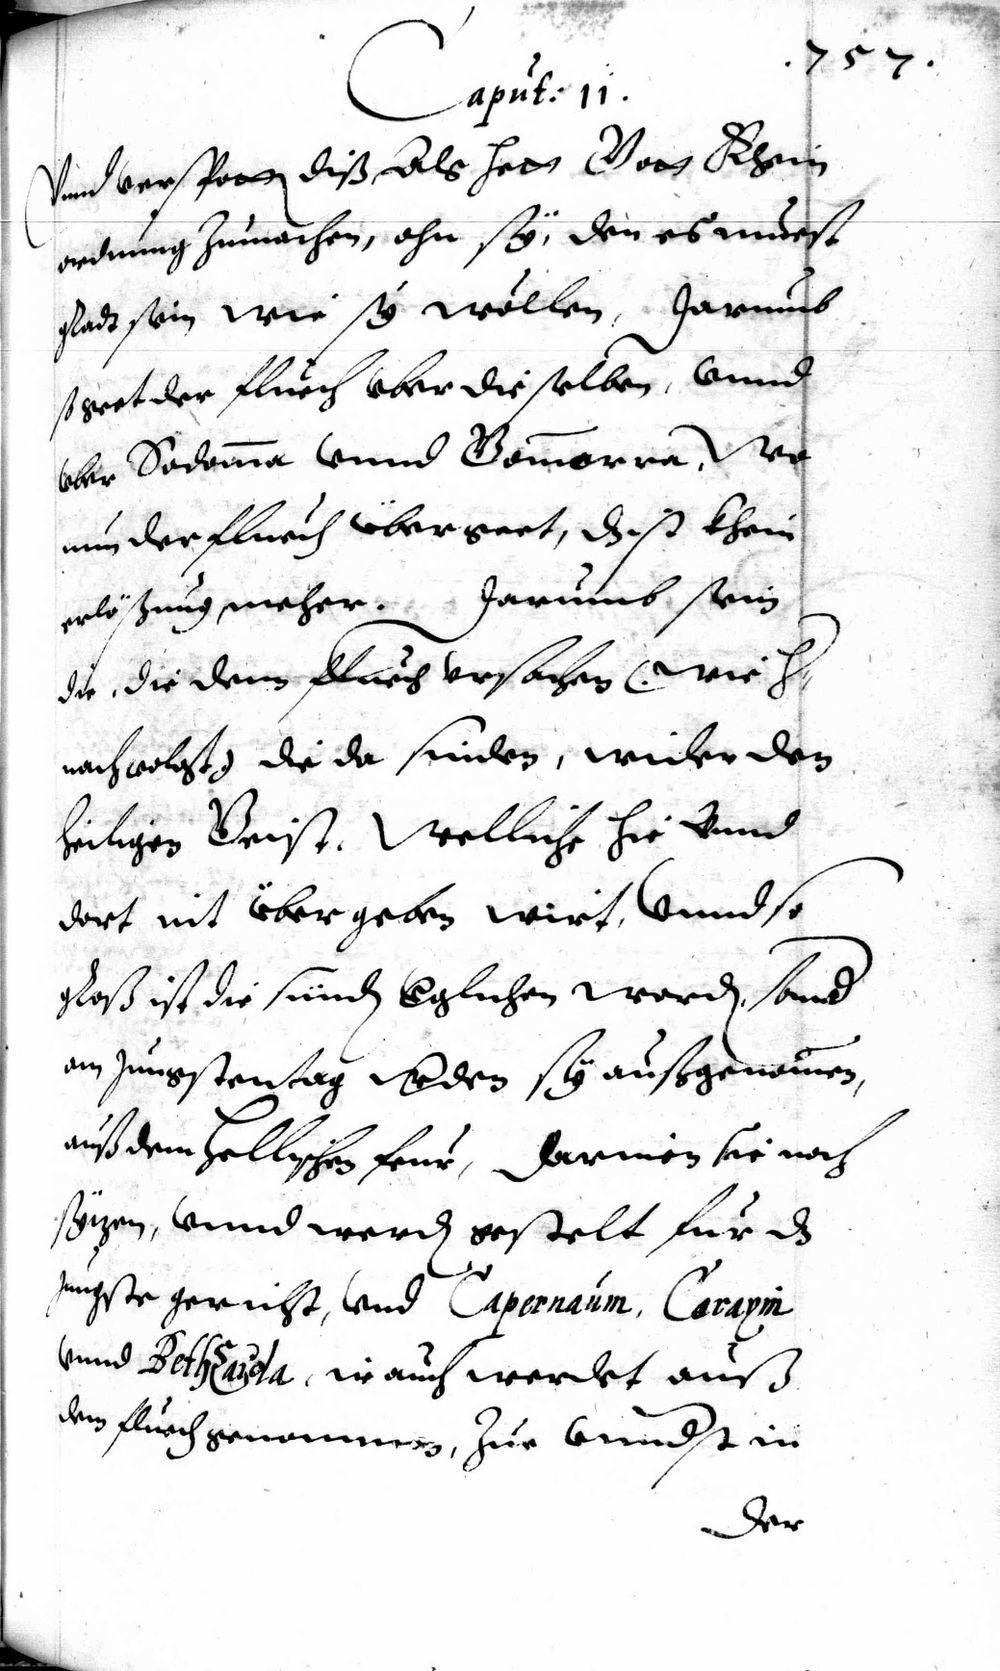 .757.
Caput: 11.
Vnnd verspotten diß, Als hett Gott Khein
ordnung zumachen, ohn sÿ, den es muest
gladt sein wie sÿ wöllen, Darumb
geet der fluech vber die selben, vnnd
vber Sodoma vnnd Gomorra, Wo
nun der fluech über geet, da ist khein
erlösung meher. Darumb sein
die, die dem fluech vrsachen (wie H
nach volgt) die da sünden, wider den
heiligen Geist, Welliche hie vnnd
dort nit über geben wirt, vnnd so
gloß ist die sünden verglichen worden, sonnd
am Jungsten tag werden sÿ außgenomen,
auß dem hellischen feur, darinen sie noch
sÿzen, vnnd werden gestelt für das
Jungste gericht, vnd Capernaum, Corazin
vnnd Bethsayda, ir auch werdet auß
dem fluech genommen, Zur vnnderst in
der